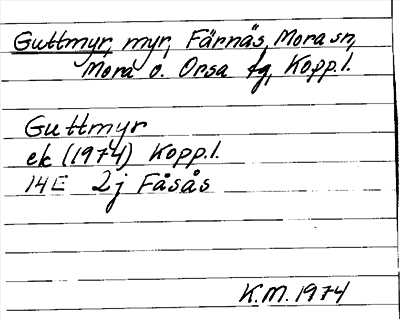 Guttmyr, myr, Färnäs, Mora sn,
Mora o. Orsa tg, Kopp.l.
Guttmyr
ek (1974) Kopp.l.
14E 2j Fåsås
K.M. 1974